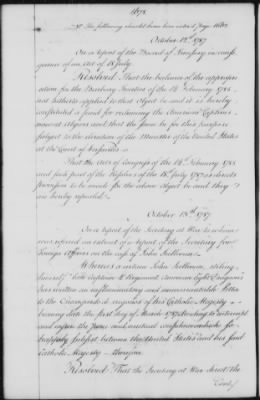 1678
The following should have been entered page 1680
October 12th 1787
On a report of the Board of Treasury in conse
quence of an act of 18 July
Resolved, That the balance of the appropri
ation for the Barbary Treaties of the 14 February 1785
not hitherto applied to that object be and it is hereby
constituted a fund for redeeming the American Captives
now at Algiers and that the same be for that purpose
subject to the direction of the Minister of the United States
at the Court of Versailles.
That the Acts of Congress of the 14 February 1785
and such part of the Resolve of the 18 July 1787 as directs
provision to be made for the above object be and they
are hereby repealed.
October 13th 1787
On a report of the Secretary at War to whom
was referred an extract of a report of the Secretary for
Foreign Affairs on the case of John Sullivan.
Whereas a certain John Sullivan, stiling
himself "late Captain 4 Regiment American Light Dragoons"
has written an inflammatory and unwarrantable letter
to the Encargado de negocios of his Catholic Majesty
bearing date the first day of March 1787 tending to interrupt
and infringe the peace and mutual confidence which so
happily subsist between the United States and his said
Catholic Majesty - therefore
Resolved That the Secretary at War direct the